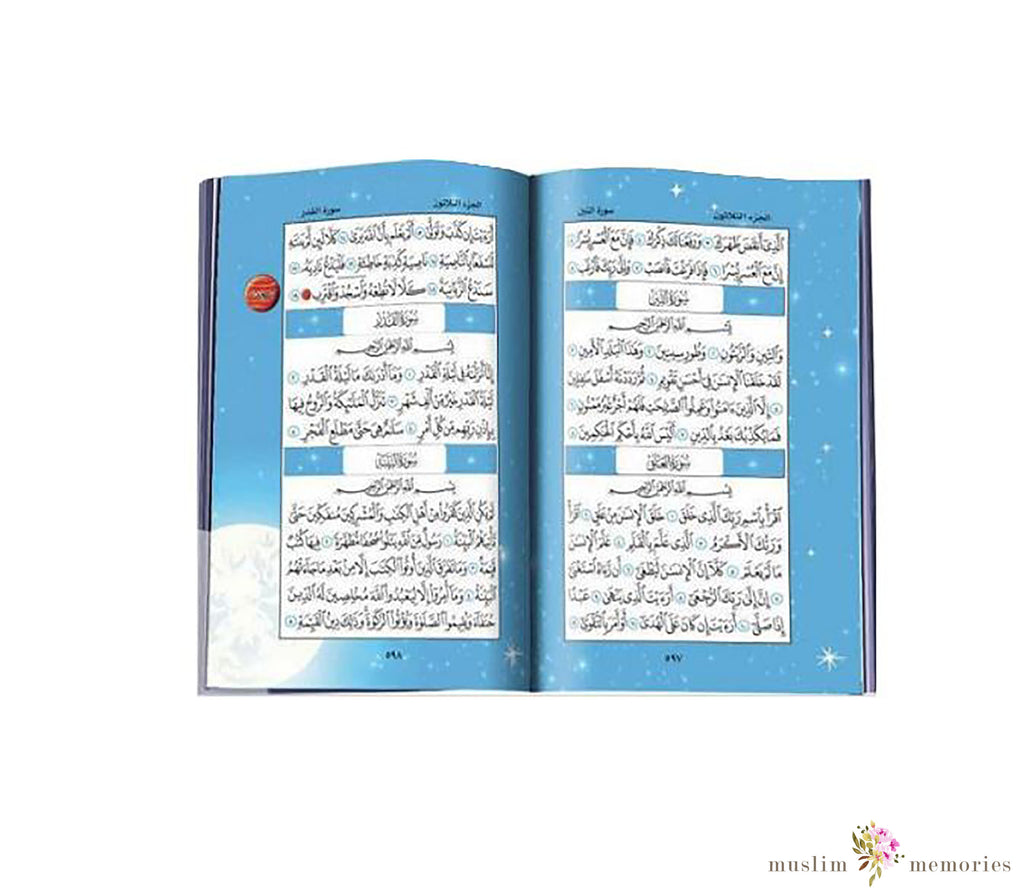 الجزء الثلاثون سورة التين
ٱلَّذِىٓ أَنقَضَ ظَهْرَكَ ٣ وَرَفَعْنَا لَكَ ذِكْرَكَ ٤ فَإِنَّ مَعَ ٱلْعُسْرِ يُسْرًا ٥
إِنَّ مَعَ ٱلْعُسْرِ يُسْرًا ٦ فَإِذَا فَرَغْتَ فَٱنصَبْ ٧ وَإِلَىٰ رَبِّكَ فَٱرْغَب ٨
سُورَةُ التِّينِ
بِسْمِ ٱللَّهِ ٱلرَّحْمَٰنِ ٱلرَّحِيمِ
وَٱلتِّينِ وَٱلزَّيْتُونِ ١ وَطُورِ سِينِينَ ٢ وَهَٰذَا ٱلْبَلَدِ ٱلْأَمِينِ ٣
لَقَدْ خَلَقْنَا ٱلْإِنسَٰنَ فِىٓ أَحْسَنِ تَقْوِيمٍ ٤ ثُمَّ رَدَدْنَٰهُ أَسْفَلَ سَٰفِلِينَ
٥ إِلَّا ٱلَّذِينَ ءَامَنُوا۟ وَعَمِلُوا۟ ٱلصَّٰلِحَٰتِ فَلَهُمْ أَجْرٌ غَيْرُ مَمْنُونٍ ٦
فَمَا يُكَذِّبُكَ بَعْدُ بِٱلدِّينِ ٧ أَلَيْسَ ٱللَّهُ بِأَحْكَمِ ٱلْحَٰكِمِينَ ٨
سُورَةُ العَلَقِ
بِسْمِ ٱللَّهِ ٱلرَّحْمَٰنِ ٱلرَّحِيمِ
ٱقْرَأْ بِٱسْمِ رَبِّكَ ٱلَّذِى خَلَقَ ١ خَلَقَ ٱلْإِنسَٰنَ مِنْ عَلَقٍ ٢ ٱقْرَأْ
وَرَبُّكَ ٱلْأَكْرَمُ ٣ ٱلَّذِى عَلَّمَ بِٱلْقَلَمِ ٤ عَلَّمَ ٱلْإِنسَٰنَ
مَا لَمْ يَعْلَمْ ٥ كَلَّآ إِنَّ ٱلْإِنسَٰنَ لَيَطْغَىٰٓ ٦ أَن رَّءَاهُ ٱسْتَغْنَىٰٓ
٧ إِنَّ إِلَىٰ رَبِّكَ ٱلرُّجْعَىٰٓ ٨ أَرَءَيْتَ ٱلَّذِى يَنْهَىٰ ٩ عَبْدًا
إِذَا صَلَّىٰٓ ١٠ أَرَءَيْتَ إِن كَانَ عَلَى ٱلْهُدَىٰٓ ١١ أَوْ أَمَرَ بِٱلتَّقْوَىٰٓ ١٢
٥٩٧
الجزء الثلاثون سورة القدر
أَرَءَيْتَ إِن كَذَّبَ وَتَوَلَّىٰٓ ١٣ أَلَمْ يَعْلَم بِأَنَّ ٱللَّهَ يَرَىٰ ١٤ كَلَّا لَئِن لَّمْ يَنتَهِ
لَنَسْفَعًۢا بِٱلنَّاصِيَةِ ١٥ نَاصِيَةٍ كَٰذِبَةٍ خَاطِئَةٍ ١٦ فَلْيَدْعُ نَادِيَهُۥ ١٧
سَنَدْعُ ٱلزَّبَانِيَةَ ١٨ كَلَّا لَا تُطِعْهُ وَٱسْجُدْ وَٱقْتَرِب ١٩
سُورَةُ القَدْرِ
بِسْمِ ٱللَّهِ ٱلرَّحْمَٰنِ ٱلرَّحِيمِ
إِنَّآ أَنزَلْنَٰهُ فِى لَيْلَةِ ٱلْقَدْرِ ١ وَمَآ أَدْرَىٰكَ مَا لَيْلَةُ ٱلْقَدْرِ ٢
لَيْلَةُ ٱلْقَدْرِ خَيْرٌ مِّنْ أَلْفِ شَهْرٍ ٣ تَنَزَّلُ ٱلْمَلَٰٓئِكَةُ وَٱلرُّوحُ فِيهَا
بِإِذْنِ رَبِّهِم مِّن كُلِّ أَمْرٍ ٤ سَلَٰمٌ هِىَ حَتَّىٰ مَطْلَعِ ٱلْفَجْرِ ٥
سُورَةُ البَيِّنَةِ
بِسْمِ ٱللَّهِ ٱلرَّحْمَٰنِ ٱلرَّحِيمِ
لَمْ يَكُنِ ٱلَّذِينَ كَفَرُوا۟ مِنْ أَهْلِ ٱلْكِتَٰبِ وَٱلْمُشْرِكِينَ مُنفَكِّينَ حَتَّىٰ
تَأْتِيَهُمُ ٱلْبَيِّنَةُ ١ رَسُولٌ مِّنَ ٱللَّهِ يَتْلُوا۟ صُحُفًا مُّطَهَّرَةً ٢ فِيهَا كُتُبٌ
قَيِّمَةٌ ٣ وَمَا تَفَرَّقَ ٱلَّذِينَ أُوتُوا۟ ٱلْكِتَٰبَ إِلَّا مِنۢ بَعْدِ مَا جَآءَتْهُمُ
ٱلْبَيِّنَةُ ٤ وَمَآ أُمِرُوٓا۟ إِلَّا لِيَعْبُدُوا۟ ٱللَّهَ مُخْلِصِينَ لَهُ ٱلدِّينَ
حُنَفَآءَ وَيُقِيمُوا۟ ٱلصَّلَوٰةَ وَيُؤْتُوا۟ ٱلزَّكَوٰةَ وَذَٰلِكَ دِينُ ٱلْقَيِّمَةِ ٥
٥٩٨
muslim memories